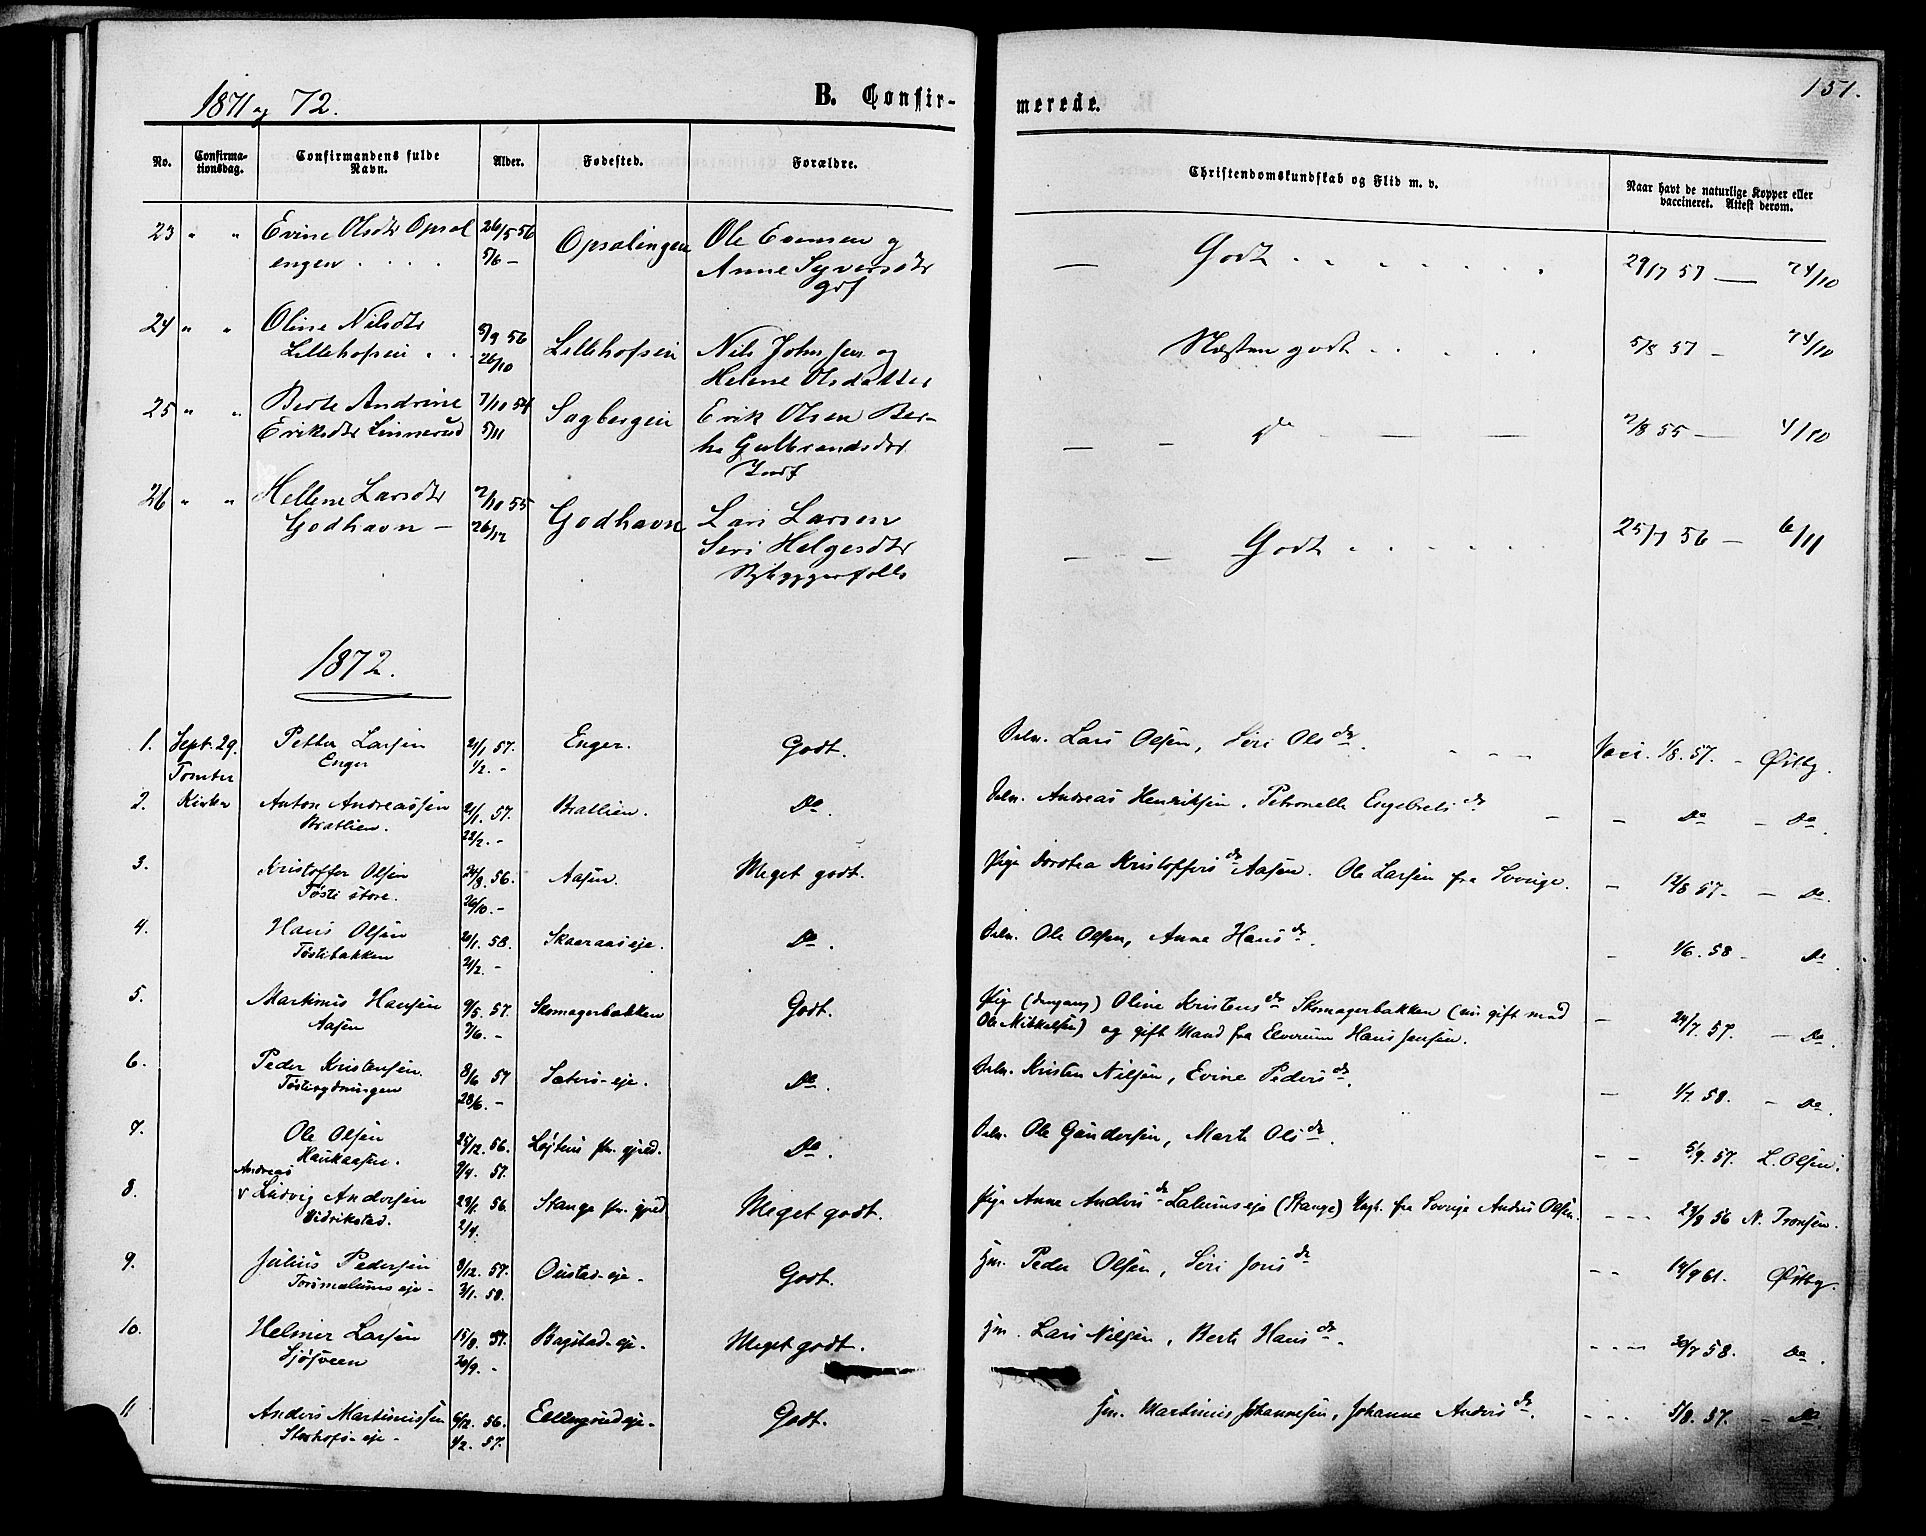 1871 og 72.
B. Confir-
merede.
151.
No.
Confirma-
tionsdag.
Confirmandens fulde
Navn.
Alder.
Fødested.
Forældre.
Christendomskundskab og Flid m. v.
Naar havt de naturlige Kopper eller
vaccineret. Attest derom.
23 " " Evine Olsdtr Opsal 26/5 56 Opsalingen Ole Evensen og Godt 29/7 57 — 24/10
engen 5/6 — Anne Syversdtr
24 " " Oline Nilsdtr 5/9 56 Lillehofsen Nils Johnsen og Næsten godt 5/8 57 — 24/10
Lillehofsen 26/10 Helene Olsdatter
25 " " Berte Andrine 7/10 54 Sagbergen Erik Olsen Ber- Do 2/8 55 — 4/10
Eriksdtr Linnerud 5/11 the Gulbrandsdtr
Indf
26 " " Hellene Larsdtr 2/10 55 Godhavn Lars Larsen Godt 25/7 56 — 6/11
Godhavn — 26/12 Siri Helgesdtr
1872.
1. Sept. 29. Petter Larsen 21/1 57. Enger. Godt. Selv. Lars Olsen, Siri Olsdr. Vacc. 1/8. 57. - Østby.
Tomter Enger 1/2. -
2. Kirke Anton Andreassen 21/1. 57. Bratlien. Do. Selv. Andreas Henriksen, Petronelle Engebretsdr — Do — Do.
Bratlien. 23/2. -
3. Kristoffer Olsen 24/8. 56. Aasen. Meget godt. Pige Dorthea Kristoffersdr Aasen. Ole Larsen fra Sverige. — 12/8 57 — Do
Tøsti store. 26/10. -
4. Hans Olsen 20/1. 58. Skaaraaseje. Do. Selv. Ole Olsen, Anne Hansdr. - 1/6. 58 - Do.
Tøstibakken 21/2. -
5. Martinus Hansen 9/5. 57. Skomagerbakken Godt. Pige (dengang) Oline Kristensdr Skomagerbakken (nu gift med — 24/7. 57. — Do.
Aasen 7/6. - Ole Mikkelsen) og gift Mand fra Elverum Hans Jensen.
6. Peder Kristensen. 8/6 57 Sæters-eje. Do. Selv. Kristen Nilsen, Evine Pedersdr. — 1/7. 58. — Do.
Tøstirydningen 28/6. -
7. Ole Olsen 25/12. 56. Løjtens pr. gjæld. Do. Selv. Ole Gundersen, Marte Olsdr. - - 5/9. 57. L. Olsen.
Haukaasen. 9/4. 57.
Andreas
8. v Ludvig Andersen 28/1. 56. Stange pr. gjæld Meget godt. Pige Anne Andersdr Lalumseje (Stange) Ungk. fra Sverige Anders Olsen. - - - 24/8 56 N. Tronsen.
Didrikstad. 2/4.
9. Julius Pedersen 8/12. 57. Oustad-eje. Godt. Hm. Peder Olsen, Siri Jonsdr - - 14/9 61. Østby.
Torsmælums eje. 3/1. 58.
10. Helmer Larsen 15/8. 57. Bagstad-eje. Meget godt. Hm. Lars Nilsen, Berte Hansdr. - - - 30/7 58. Do.
Sjøsveen 20/9. -
11 Anders Martinussen 6/12. 56. Ellingsrudeje. Godt. Hm. Martinus Johannesen, Johanne Andersdr. - - - 5/8. 57. - Do.
Storhofs-eje. 1/2. 57.